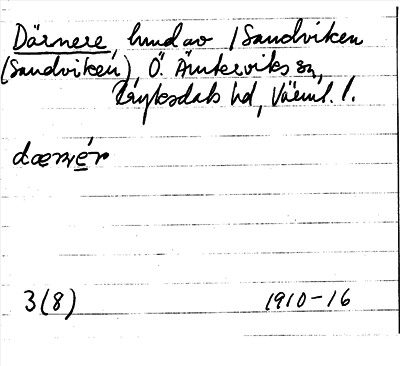 Därnere, lund av / Sandviken
(Sandviken), Ö. Ämterviks sn,
Fryksdals hd, Värml. l.
dærnér
3(8) 1910-16